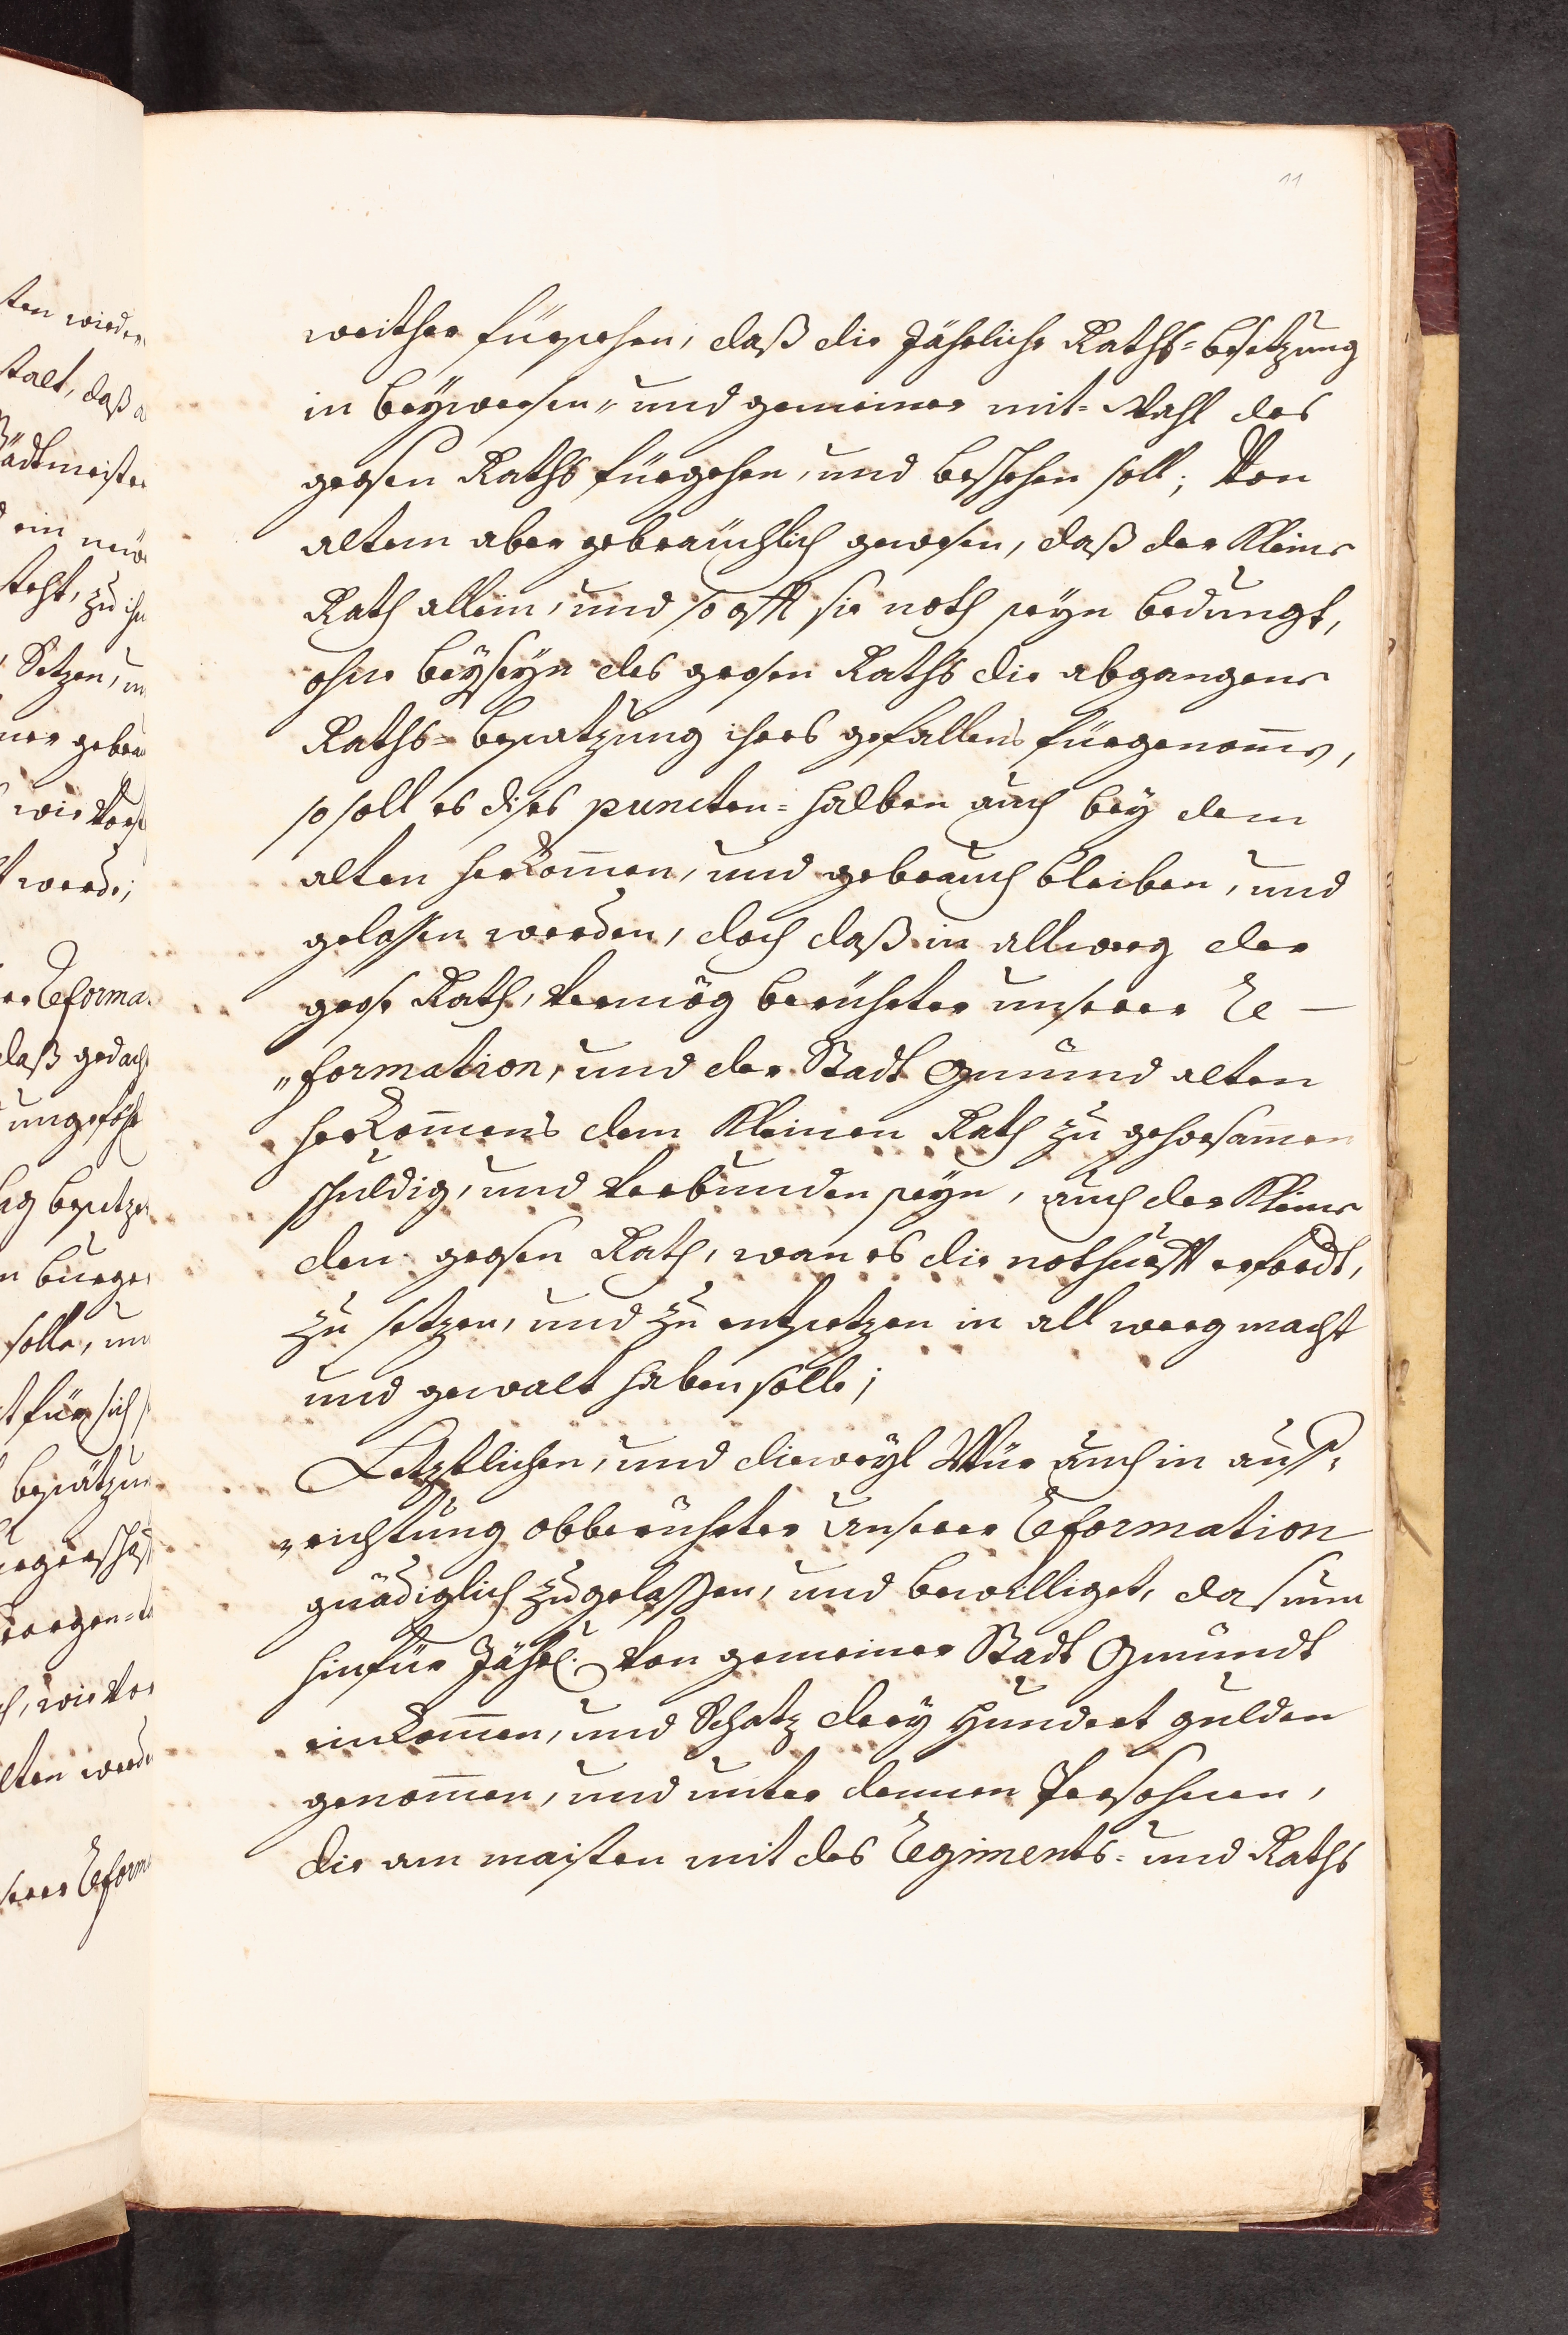 11
weither fürsehen, daß die Jährliche Raths=besetzung
in beÿweesen„ und gemeiner mit=Wahl des
grosen Raths fürgehen, und besshehen soll; Von
altem aber gebräuchlich gewesen, daß der Kleine
Rath allein, und so offt sie noth seÿn bedungt,
ohne beÿseÿn des grosen Raths die abgangene
Raths=besatzung ihres gefallens fürgenom̄e,
so soll es dises puncten=halben auch beÿ dem
alten herkom̄en, und gebrauch bleiben, und
gelassen werden, doch daß in allweeg der
grose Rath, Vermög berührter unserer Re—
„formation, und der Stadt Gmünd alten
herkom̄ens dem Kleinen Rath zu gehorsam̄en
schuldig, und Verbunden seÿn, auch der Kleine
den grosen Rath, wan es die nothurfft erfordt,
zu setzen, und zu entsetzen in all weeg macht
und gewalt haben solle;
Letztlichen, und dieweÿl Wür auch in auß„
„richtung obberührter unserer Reformation
gnädiglich zugelassen, und bewilliget, das nun
hinfür Jährl. Von gemeiner Stadt Gmündt
einkom̄en, und Schatz dreÿ Hundert gulden
genom̄en, und unter dennen Persohnen,
die am maisten mit des Regiments= und Raths
ten wieder
stalt, daß
ein
zu
Setzen,
geb
wie Vor
werde;
Reforma
daß gedach
ungefähr
solle, un
für sich
wie Vor
lten werde
serer Reform